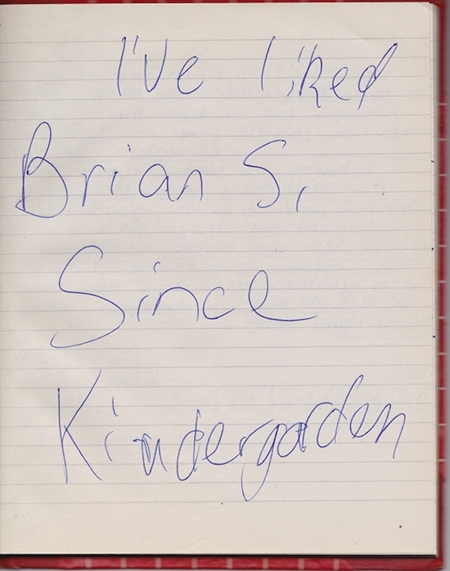 I've liked
Brian S.
Since
Kindergarden